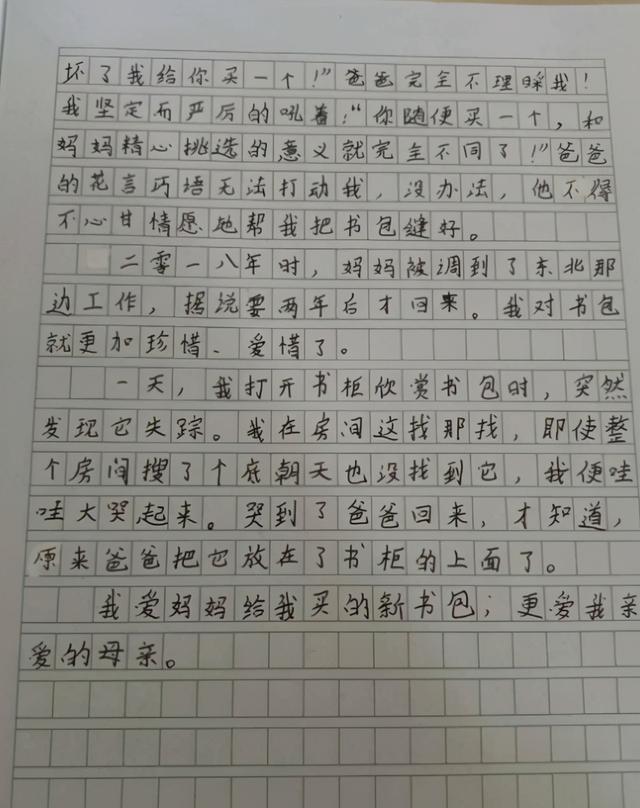 坏了我给你买一个！”爸爸完全不理睬我！
我坚定而严厉的吼着：“你随便买一个，和
妈妈精心挑选的意义就完全不同了！”爸爸
的花言巧语无法打动我，没办法，他不得
不心甘情愿地帮我把书包缝好。
二零一八年时，妈妈被调到了东北那
边工作，据说要两年后才回来。我对书包
就更加珍惜、爱惜了。
一天，我打开书柜欣赏书包时，突然
发现它失踪。我在房间这找那找，即使整
个房间搜了个底朝天也没找到它，我便哇
哇大哭起来。哭到了爸爸回来，才知道，
原来爸爸把它放在了书柜的上面了。
我爱妈妈给我买的新书包；更爱我亲
爱的母亲。